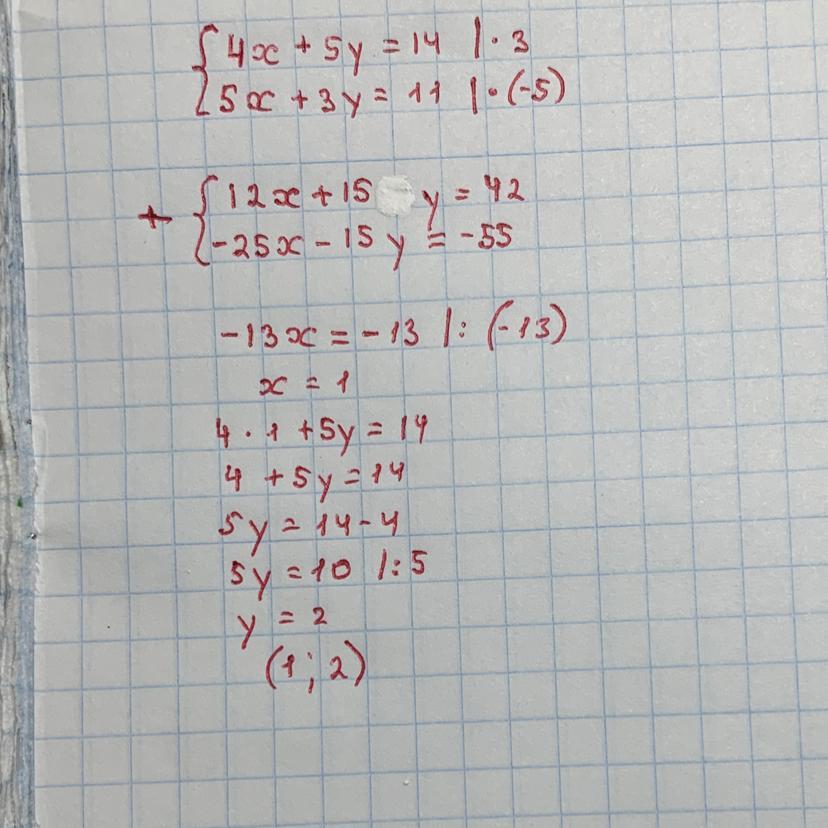 { 4x + 5y = 14 | · 3
5x + 3y = 11 | · (-5)
+ { 12x + 15 y = 42
-25x - 15y = -55
-13x = -13 | : (-13)
x = 1
4 · 1 + 5y = 14
4 + 5y = 14
5y = 14 - 4
5y = 10 | : 5
y = 2
(1; 2)